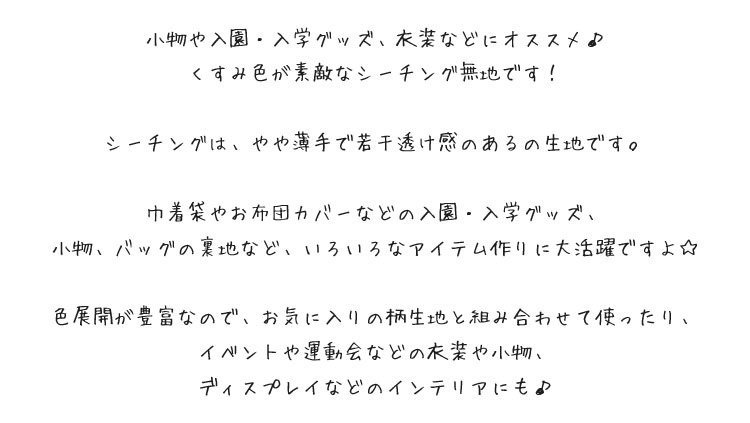 小物や入園・入学グッズ、衣装などにオススメ♪
くすみ色が素敵なシーチング無地です!
シーチングは、やや薄手で若干透け感のあるの生地です。
巾着袋やお布団カバーなどの入園・入学グッズ、
小物、バッグの裏地など、いろいろなアイテム作りに大活躍ですよ☆
色展開が豊富なので、お気に入りの柄生地と組み合わせて使ったり、
イベントや運動会などの衣装や小物、
ディスプレイなどのインテリアにも♪